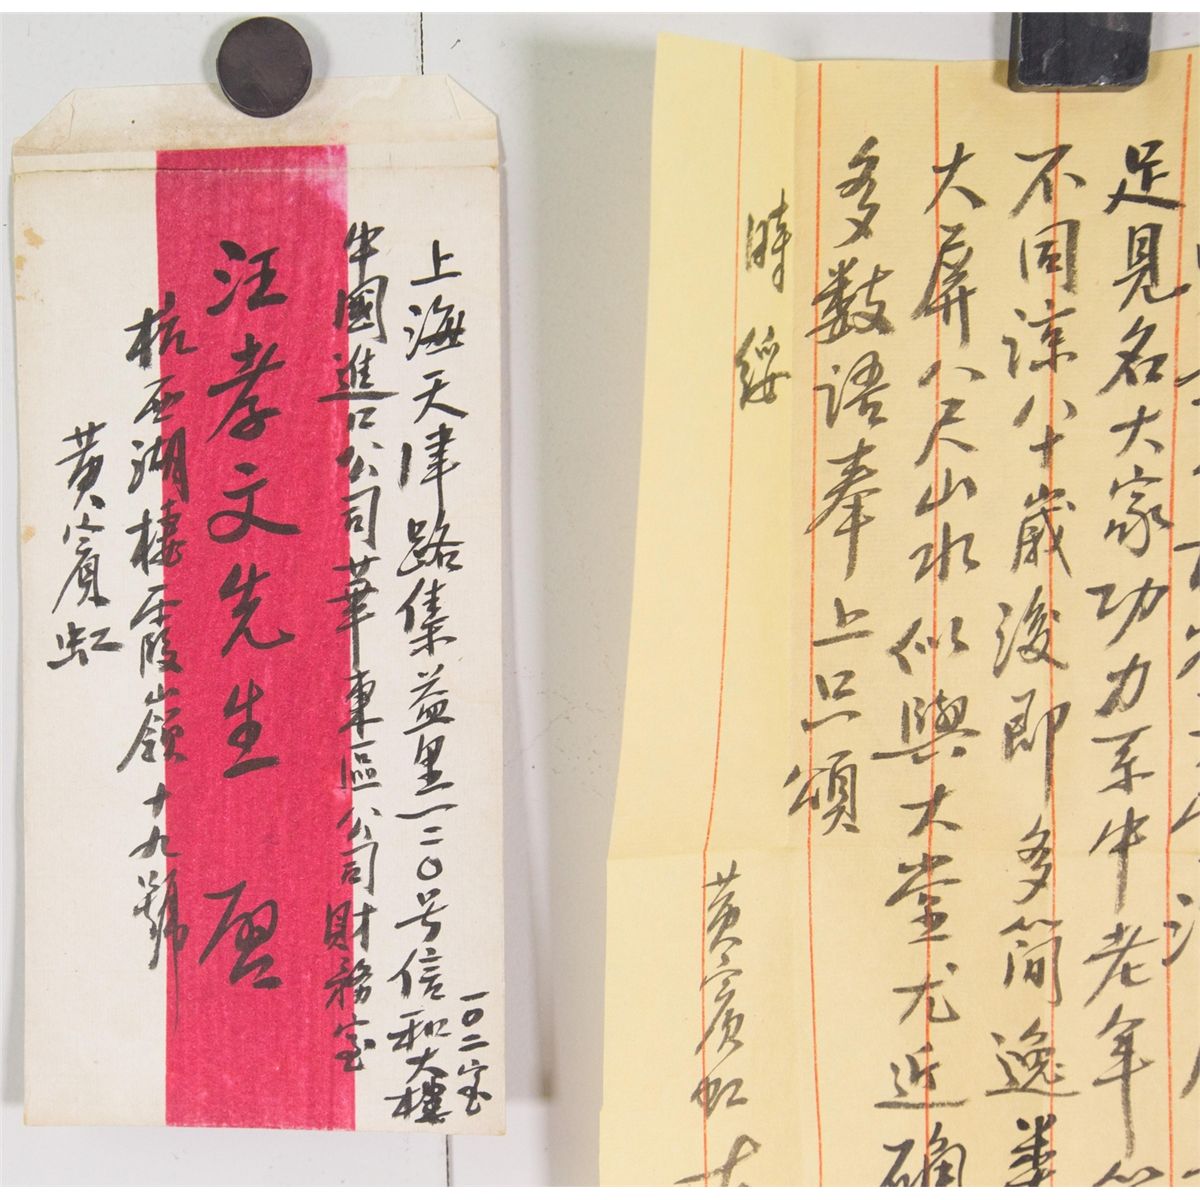 上海天津路集益里一二〇号信和大樓
一〇二室
中國進口公司華東區公司財務室
汪孝文先生 啓
杭西湖棲霞嶺十九號
黄賓虹
足見名大家功力系中老年
不同諒八十歲後即多簡逸
大屏八尺山水似與大堂尤近確
多数語奉上只頌
時綏
黄賓虹